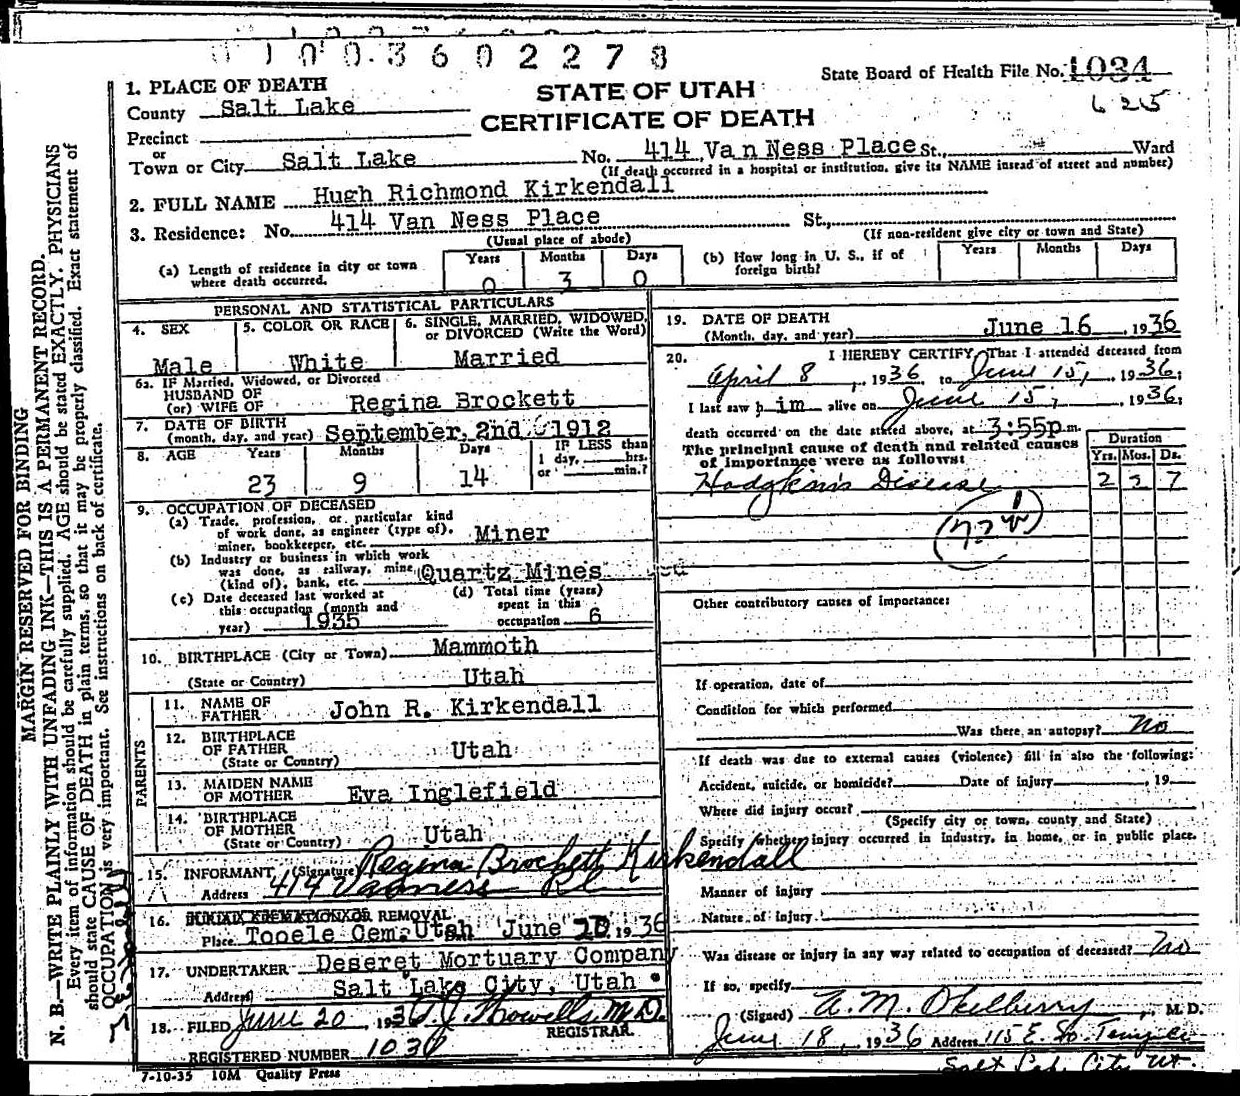 01003602278
1. PLACE OF DEATH
State Board of Health File No. 1034
625
County Salt Lake
STATE OF UTAH
CERTIFICATE OF DEATH
Precinct
or
Town or City Salt Lake No. 414 Van Ness Place St., Ward
(If death occurred in a hospital or institution, give its NAME insead of street and number)
2. FULL NAME Hugh Richmond Kirkendall
3. Residence: No. 414 Van Ness Place St.,
(Usual place of abode) (If non-resident give city or town and State)
(a) Length of residence in city or town where death occurred. Years 0 Months 3 Days 0
(b) How long in U. S., if of foreign birth? Years Months Days
PERSONAL AND STATISTICAL PARTICULARS
4. SEX Male
5. COLOR OR RACE White
6. SINGLE, MARRIED, WIDOWED, or DIVORCED (Write the Word) Married
6a. IF Married, Widowed, or Divorced
HUSBAND OF
(or) WIFE OF Regina Brockett
7. DATE OF BIRTH
(month, day, and year) September 2nd 1912
8. AGE Years 23 Months 9 Days 14 IF LESS than 1 day, hrs. or min.?
9. OCCUPATION OF DECEASED
(a) Trade, profession, or particular kind
of work done, as engineer (type of),
miner, bookkeeper, etc. Miner
(b) Industry or business in which work
was done, as railway, mine,
(kind of), bank, etc. Quartz Mines
(c) Date deceased last worked at
this occupation (month and
year) 1935
(d) Total time (years)
spent in this
occupation 6
10. BIRTHPLACE (City or Town) Mammoth
(State or Country) Utah
PARENTS
11. NAME OF FATHER John R. Kirkendall
12. BIRTHPLACE OF FATHER
(State or Country) Utah
13. MAIDEN NAME OF MOTHER Eva Inglefield
14. BIRTHPLACE OF MOTHER
(State or Country) Utah
15. INFORMANT (Signature) Regina Brockett Kirkendall
Address 414 Vanness Pl
16. BURIAL CREMATION OR REMOVAL
Place Tooele Cem. Utah June 20 1936
17. UNDERTAKER Deseret Mortuary Company
Address Salt Lake City, Utah
18. FILED June 20 193 M.D.
REGISTRAR
REGISTERED NUMBER 1036
7-10-35 10M Quality Press
19. DATE OF DEATH
(Month, day, and year) June 16, 1936
20. I HEREBY CERTIFY, That I attended deceased from
April 8, 1936 to June 15, 1936;
I last saw him alive on June 15, 1936;
death occurred on the date stated above, at 3:55p.m.
The principal cause of death and related causes
of importance were as follows:
Duration
Yrs. Mos. Ds.
Hodgkins Disease 2 2 7
Other contributory causes of importance:
If operation, date of
Condition for which performed
Was there an autopsy? No
If death was due to external causes (violence) fill in also the following:
Accident, suicide, or homicide? Date of injury, 19
Where did injury occur?
(Specify city or town, county and State)
Specify whether injury occurred in industry, in home, or in public place.
Manner of injury
Nature of injury
Was disease or injury in any way related to occupation of deceased? No
If so, specify
(Signed) A. M. Okelberry, M. D.
June 18, 1936 Address 115 E. So. Temple
Salt Lake City Ut.
MARGIN RESERVED FOR BINDING
N. B.—WRITE PLAINLY WITH UNFADING INK—THIS IS A PERMANENT RECORD.
Every item of information should be carefully supplied. AGE should be stated EXACTLY. PHYSICIANS
should state CAUSE OF DEATH in plain terms, so that it may be properly classified. Exact statement of
OCCUPATION is very important. See instructions on back of certificate.